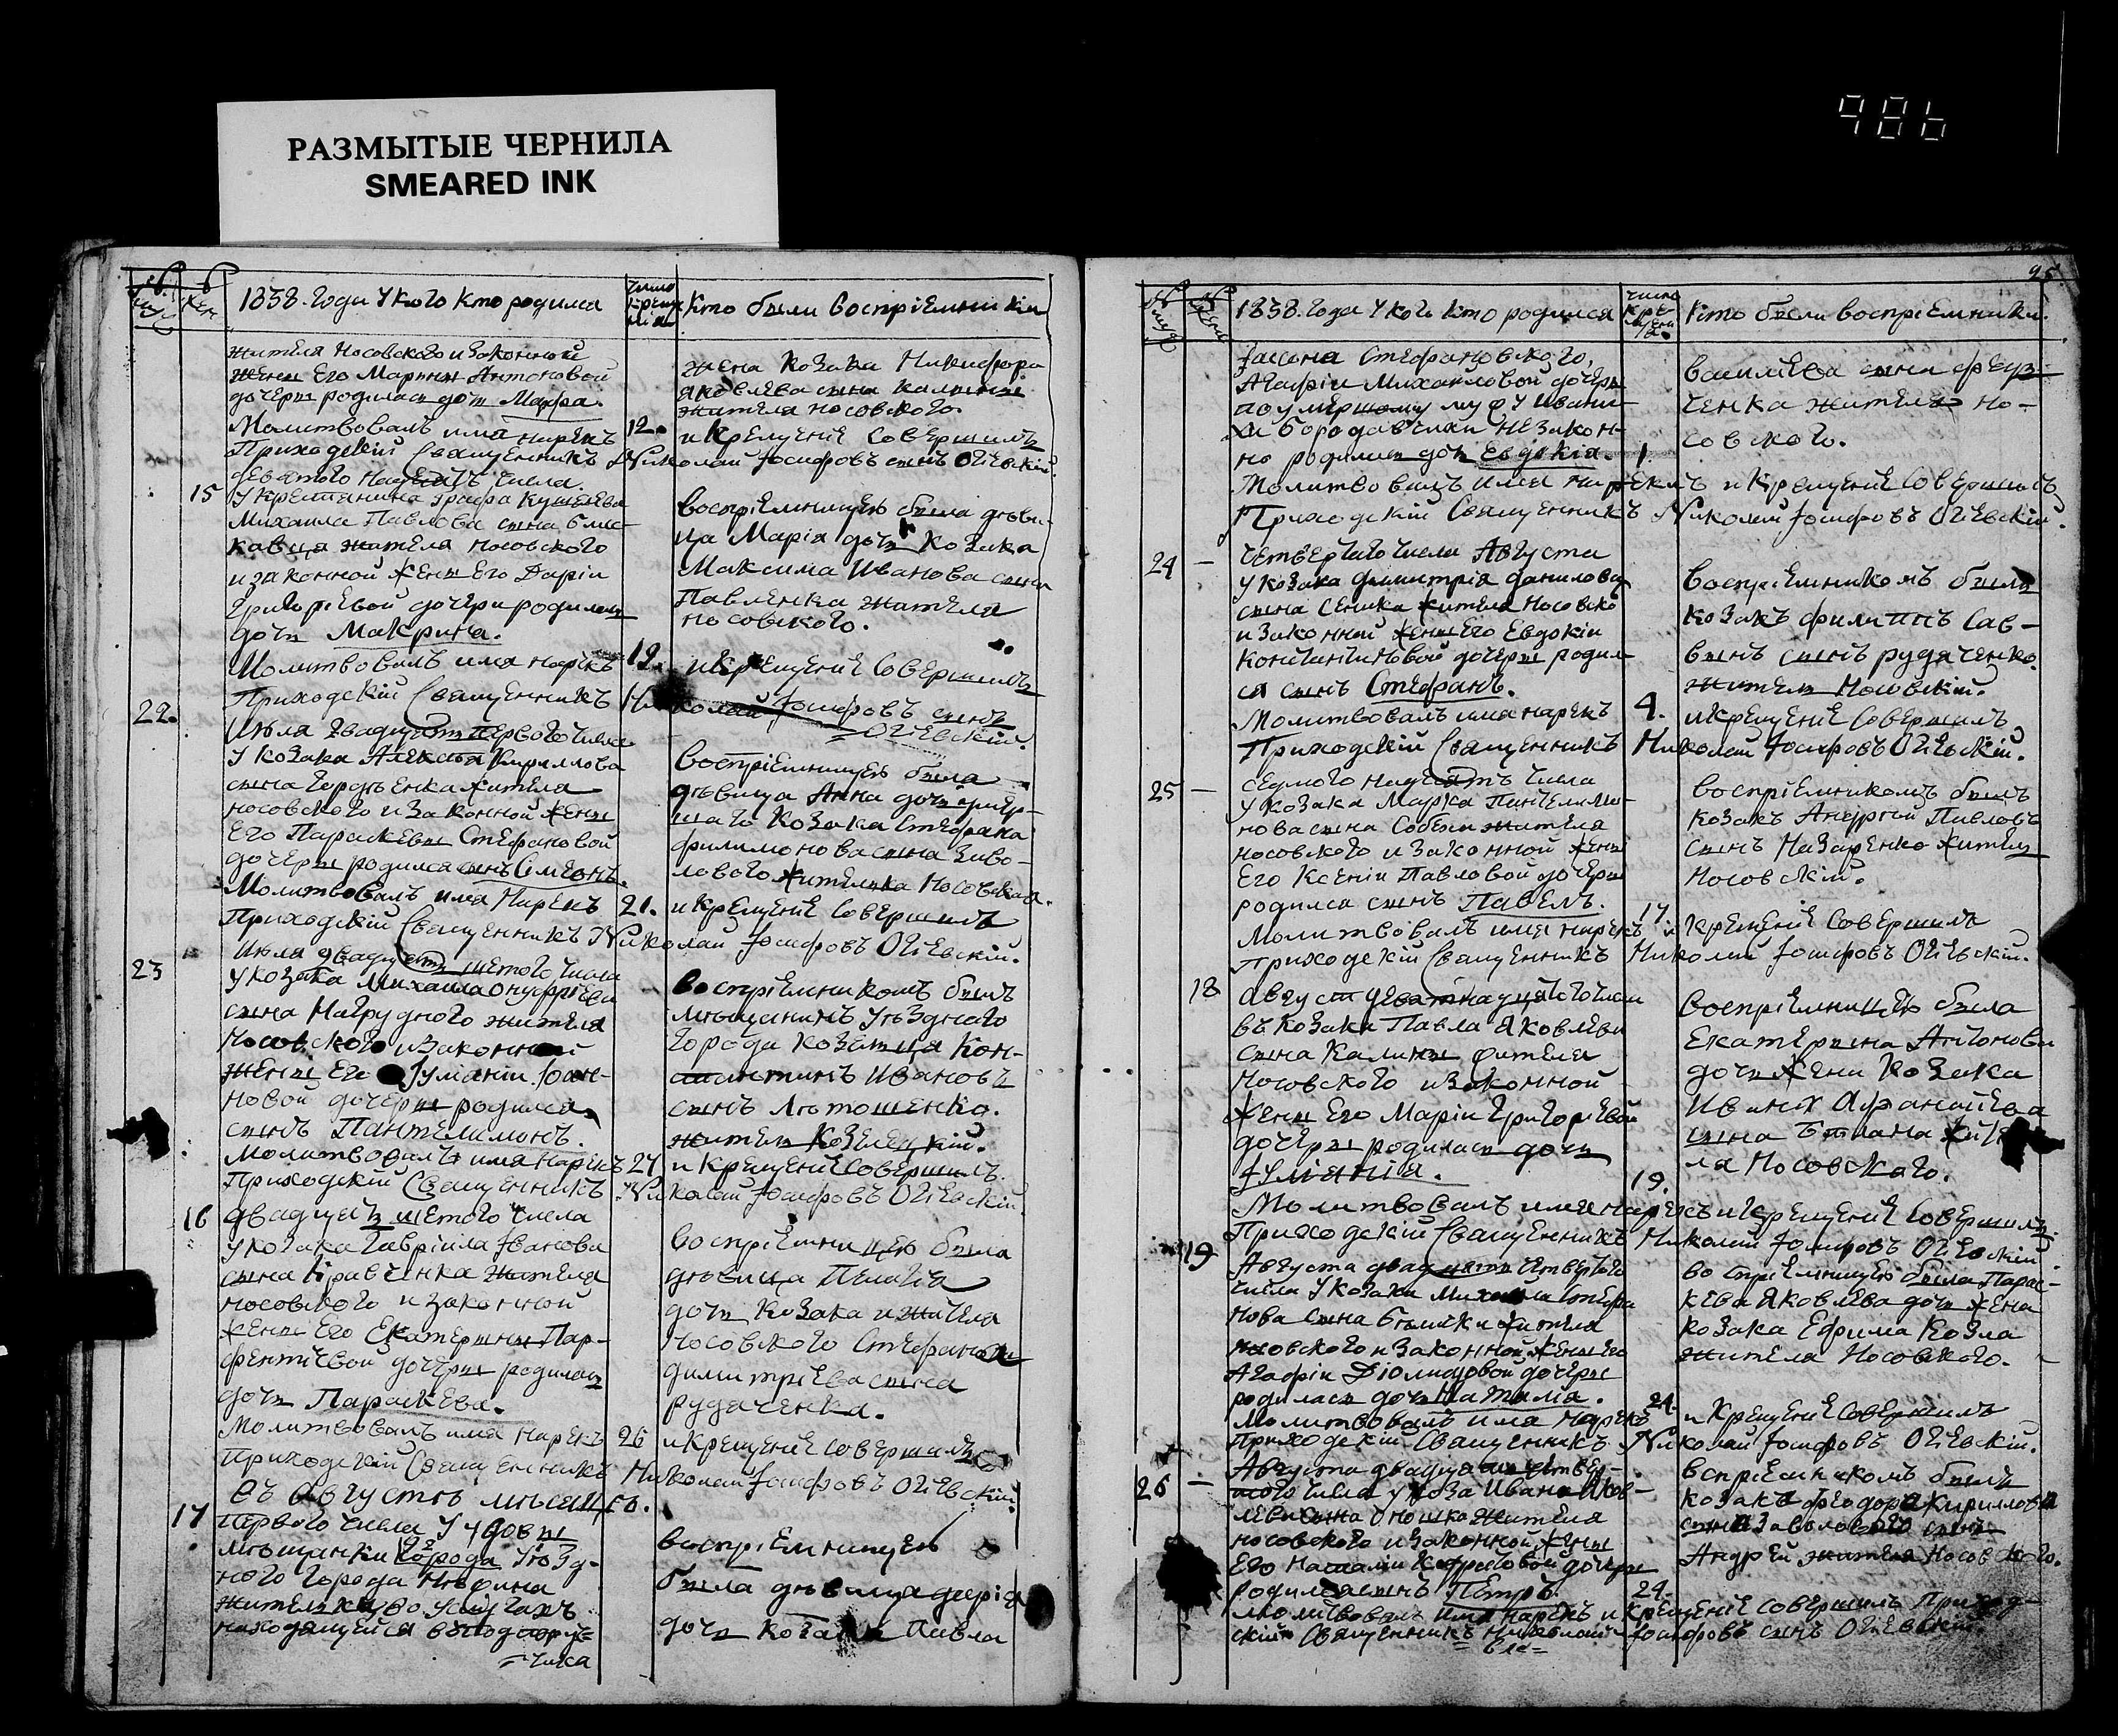 РАЗМЫТЫЕ ЧЕРНИЛА
SMEARED INK
986
1838. Года У кого кто родился
Кто были Воспріемники
жителя Носовского и законной
жены Его Марины Антоновой
дочеры родилась дочь Марфа.
Молитвовалъ имя нарекъ
Приходскій Священникъ
девятого надцать числа
15
У крестянина графа Кушелева
Михаила Павлова сына
жителя Носовского
и законной жены Его Даріи
Григоріевой дочери родилась
дочь Макрина.
Молитвовалъ имя нарекъ
Приходскій Священникъ
22.
Июля двадцать первого числа
У козака Алексея Кириллова
сына жителя
носовского и законной жены
Его Параскевы Стефановой
дочеры родился сынъ Симеонъ.
Молитвовалъ имя Нарекъ
Приходскій Священникъ
23
Июля двадцать шетого числа
У козака Михаила Онуфріева
сына Нагрудного жителя
Носовского и законной
жены Его Іуліаніи
новой дочеры родился
сынъ Пантелимонъ.
Молитвовалъ имя нарекъ
Приходскій Священникъ
16
двадцать шетого числа
У козака Гавріила Іванова
сына Кравченка жителя
носовского и законной
жены Его Екатерины Пар-
фентіевой дочеры родилась
дочь Параскева.
Молитвовалъ имя нарекъ
Приходскій Священникъ
Въ Августе месяце.
17
Первого числа У вдовы
мещанки города Уезд-
ного города Нежина
находящейся
жена козака Никифора
яковлева сына калины
жителя носовского.
12.
и крещеніе совершилъ
Николай Іосифовъ сынъ Огіевскій.
воспріемницею была деви-
ца Марія дочь козака
Максима Иванова сына
Павленка жителя
носовского.
19.
и крещеніе совершилъ
Николай Іосифовъ сынъ
Огіевскій.
Воспріемницею была
девица Анна дочь умер-
шаго козака Стефана
филимонова сына Заво-
лового жителька Носовская.
21.
и крещеніе совершилъ
Николай Іосифовъ Огіевскій.
Воспріемникомъ былъ
мещанинъ Уезднаго
города Козельца Кон-
стантинъ Ивановъ
сынъ Лотошенко.
житель Козелецкій.
27
и крещеніе совершилъ
Николай Іосифовъ Огіевскій
Воспріемницею была
девица Пелагія
дочь козака и жителя
Носовского Стефана
димитріева сына
рудченка.
26
и крещеніе совершилъ
Николай Іосифовъ Огіевскій.
воспріемницею
была девица
дочь козака Павла
1838. Года У кого кто родился
Кто были воспріемники.
Стефановского,
Агафіи Михайловой дочеры
по умершому мужу
незакон-
но родилась дочь Евдокія.
Молитвовалъ имя нарекълъ и крещеніе совершилъ
Приходскій Священникъ Николай Іосифовъ Огіевскій.
24
четвертого числа Августа
У козака димитрія данилова
сына Сенька жителя Носовско
и законной жены Его Евдокіи
Константиновой дочеры родил-
ся сынъ Стефанъ.
Молитвовалъ имя нарекъ
Приходскій Священникъ
25
седмого надцать числа
У козака Марка Пантелимо-
нова сына жителя
носовского и законной жены
Его Ксеніи Павловой дочеры
родился сынъ Павелъ.
Молитвовалъ имя нарекъ
Приходскій Священникъ
18
Август девятнадцатого числа
въ козака Павла Яковлева
сына Калины жителя
Носовского и законной
жены Его Маріи Григоріевой
дочеры родилась дочь
Іуліанія.
Молитвовалъ имя нарекъ
Приходскій Священникъ
19
Августа двадцать четвертого
числа У козака Михаила Стефа
нова сына жителя
носовского и законной жены его
Агафіи дочеры
родилась дочь Наталія.
Молитвовалъ имя нарекъ
Приходскій Священникъ
26
Августа двадцать четвер-
того числа у коза Ивана Яков-
лева сына Оношка жителя
носовского и законной жены
Его Наталіи дочеры
родился сынъ Петръ.
Молитвовалъ имя нарекъ и крещеніе совершилъ Приход-
скій Священникъ Николай Іосифовъ сынъ Огіевскій
Василіева сына
ченка жителя но-
совского.
1.
воспріемникомъ былъ
козакъ филиппъ Сав-
вынъ сынъ рудченко.
житель Носовскій.
4.
и крещеніе совершилъ
Николай Іосифовъ Огіевскій.
воспріемникомъ былъ
козакъ Андрей Павловъ
сынъ Назаренко житель
Носовскій.
17.
и крещеніе совершилъ
Николай Іосифовъ Огіевскій.
воспріемницею была
Екатерына Антонова
дочь жена козака
Ивана Афанасіева
сына
ля Носовского.
19.
и крещеніе совершилъ
Николай Іосифовъ Огіевскій
воспріемницею была Парас-
кева Яковлева дочь жена
козака Ефима Козла
жителя Носовского.
24.
и крещеніе совершилъ
Николай Іосифовъ Огіевскій.
воспріемникомъ былъ
козака феодора Кириллова
сына Заволового сынъ
Андрей жителя Носовского.
24.